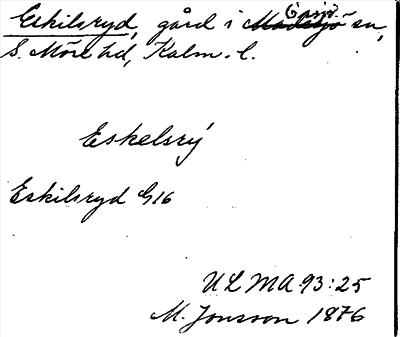 Eskilsryd, gård i Madesjö Örsjö sn,
S. Möre hd, Kalm. l.
Eskelsrý
Eskilsryd G16
ULMA 93:25
M. Jonsson 1876